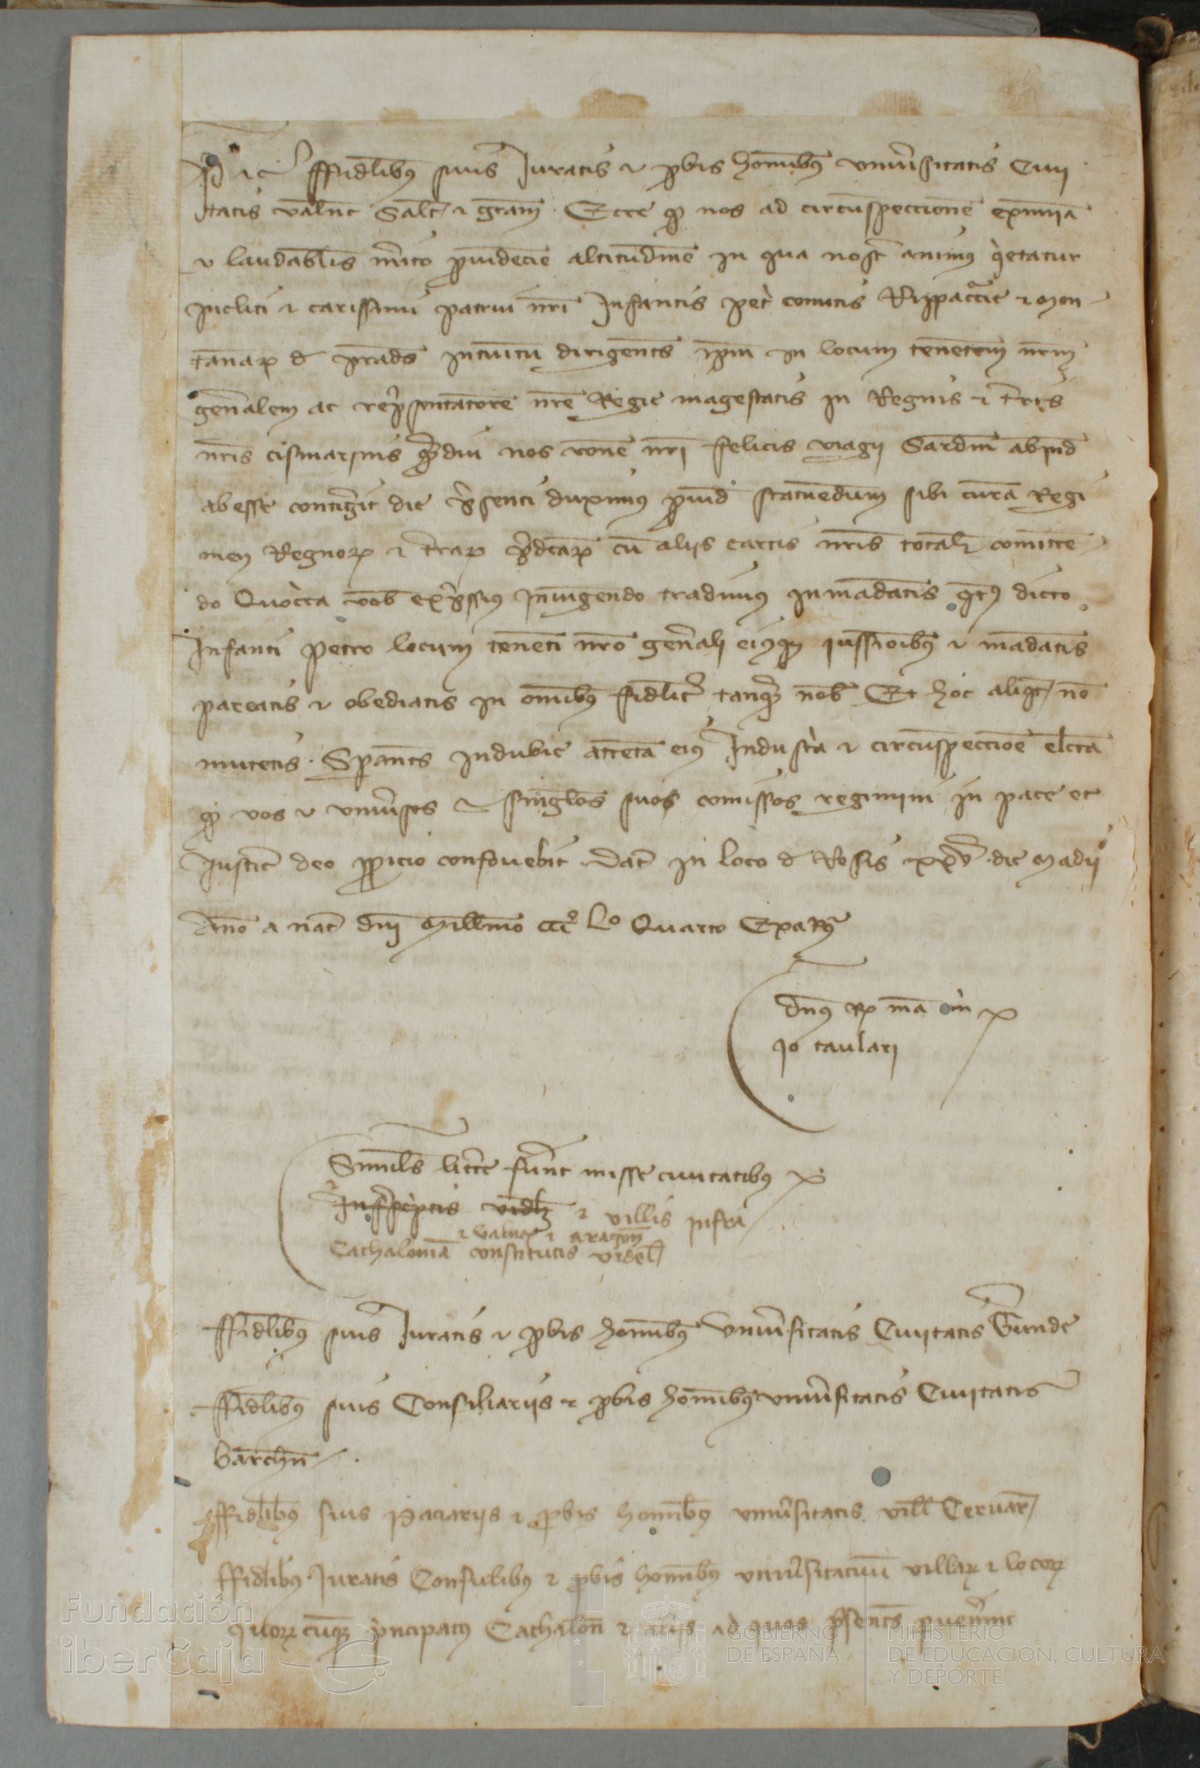 P etc ffidelibus suis Iuratis et probis hominibus universitatis Civi
tatis Valencie Salutem et graciam Ecce quod nos ad circunspeccionem eximiam
et laudabilis merito providencie altitudinem in qua noster animus quietatur
incliti et carissimi patrui nostri Infantis petri comitis Rippacurcie et mon
tanarum de pradis intuitum dirigentes ipsum in locum tenentem nostrum
generalem ac representatorem nostre Regie magestatis in Regnis et terris
nostris cismarinis quamdiu nos racione nostri felicis viagii Sardinie abinde
abesse contigerit die presenti duximus providendum statuendum sibi curam Regi
men Regnorum et terrarum predictarum cum aliis cartis nostris totaliter comitten
do Quocirca vobis expressius iniungendo tradimus in mandatis quatenus dicto
Infanti petro locum tenenti nostro generali eiusque iussionibus et mandatis
pareatis et obediatis in omnibus fideliter tanquam nobis Et hoc aliquatenus non
mutetis Sperantes indubie attenta eius Industria et circunspeccione electa
quod vos et universos et singulos suos comissos regimini in pace et
Iusticia deo propicio confovebit Datum in loco de Rosis xxv die madii
Anno a nativitate domini Millesimo CCCº Lº Quarto Exa Rª
Dominus Rex mandavit michi
Jo taularii
Similes littere fuerunt misse civitatibus
Infrascriptis videlicet et villis infra
et Valencie et aragonum
Cathaloniam constitutis videlicet
ffidelibus suis Iuratis et probis hominibus Universitatis Civitatis Gerunde
ffidelibus suis Consiliariis et probis hominibus universitatis Civitatis
barchinone
ffidelibus suis paciariis et probis hominibus universitatis ville Cervarie
ffidelibus Iuratis Consulibus et probis hominibus universitatum villarum et locorum
quorumcumque principatus Cathalonie et aliis ad quos presentes pervenerint
Fundación
iberCaja
GOBIERNO
DE ESPAÑA
MINISTERIO
DE EDUCACIÓN, CULTURA
Y DEPORTE